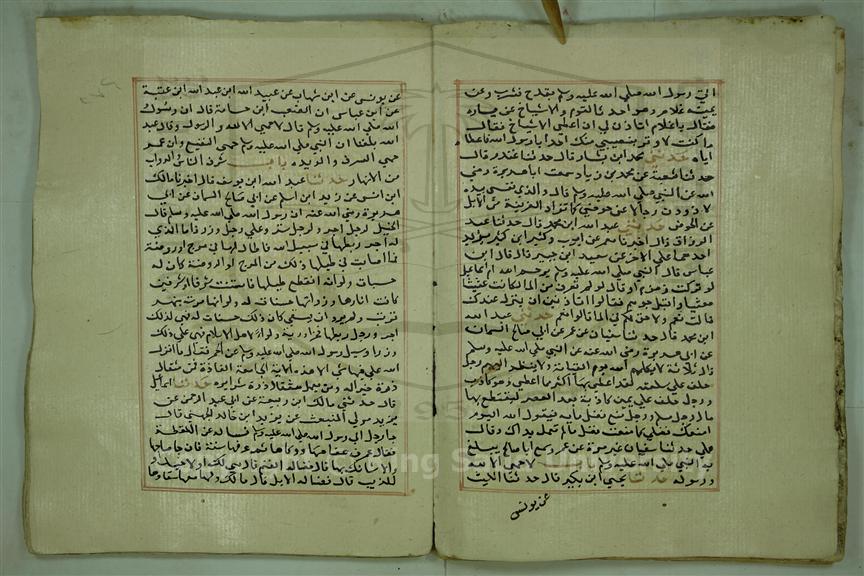 الى رسول الله صلى الله عليه وسلم بقدح فشرب وعن
يمينه غلام وهو احدث القوم والاشياخ عن يساره
فقال ياغلام اتاذن لي ان اعطي الاشياخ فقال
ما كنت لاوثر بنصيبي منك احدا يا رسول الله فاعطا
اياه حدثني محمد ابن بشار قال حدثنا غندر قال
حدثنا شعبة عن محمد بن زياد سمعت ابا هريرة رضي
الله عن النبي صلى الله عليه وسلم قال والذي نفسي بيده
لاذودن رجالا عن حوضي كما تزاد الغريبة من الابل
عن الحوض حدثني عبد الله ابن محمد قال حدثنا عبد
الرزاق قال اخبرنا معمر عن ايوب وكثير ابن كثير يزيد
احدهما على الاخر عن سعيد ابن جبير قال قال ابن
عباس قال النبي صلى الله عليه وسلم يرحم الله ام اسماعيل
لو تركت زمزم او قال لو لم تغرف من الماء لكانت عينا
معينا واقبل جرهم فقالوا اتاذنين ان ننزل عندك
قالت نعم ولا حق لكم في الماء قالوا نعم حدثني عبد الله
ابن محمد قال حدثنا سفيان عن عمرو عن ابي صالح السمان
عن ابي هريرة رضي الله عنه عن النبي صلى الله عليه وسلم
قال ثلاثة لا يكلمهم الله يوم القيامة ولا ينظر اليهم رجل
حلف على سلعته لقد اعطى بها اكثر مما اعطي وهو كاذب
ورجل حلف على يمين كاذبة بعد العصر ليقتطع بها
مال رجل مسلم ورجل منع فضل ماء فيقول الله اليوم
امنعك فضلي كما منعت فضل ما لم تعمل يداك وقال
علي حدثنا سفيان غير مرة عن عمرو سمع ابا صالح يبلغ
به النبي صلى الله عليه وسلم لا حمى الا لله
ورسوله حدثنا يحيى ابن بكير قال حدثنا الليث
عن يونس
عن يونس عن ابن شهاب عن عبيد الله ابن عبد الله ابن عتبة
عن ابن عباس ان الصعب ابن جثامة قال ان رسول
الله صلى الله عليه وسلم قال لا حمى الا لله والرسوله وقال عبد
الله بلغنا ان النبي صلى الله عليه وسلم حمى النقيع وان عمر
حمى السرف والربذه باب شرب الناس الدواب
من الانهار حدثنا عبد الله ابن يوسف قال اخبرنا مالك
ابن انس عن زيد ابن اسلم عن ابي صالح السمان عن ابي
هريرة رضي الله عنه ان رسول الله صلى الله عليه وسلم قال
الخيل لرجل اجر ولرجل ستر وعلى رجل وزر فاما الذي
له اجر ربطها في سبيل الله فاطال لها في مرج او روضة
فما اصابت في طيلها ذلك من المرج او الروضة كان له
حسنات ولو انه انقطع طيلها فاستنت شرفا او شرفين
كانت اثارها وروثها حسنات له ولو انها مرت بنهر
فشربت ولم يرد ان يسقي كان ذلك حسنات له فهي لذلك
اجر ورجل ربطها فخرا وريا ونواء لاهل الاسلام فهي على ذلك
وزر وسئل رسول الله صلى الله عليه وسلم عن الحمر فقال ما انزل
الله علي فيها شي الا هذه الاية الجامعة الفاذة فمن يعمل مثقال
ذرة خيرا يره ومن يعمل مثقال ذرة شرا يره حدثنا اسماعيل
قال حدثني مالك ابن ربيعة عن ابي عبد الرحمن عن
يزيد مولى المنبعث عن يزيد ابن خالد الجهني قال
جا رجل الى رسول الله صلى الله عليه وسلم فساله عن اللقطة
فقال اعرف عفاصها ووكاها ثم عرفها سنة فان جا صاحبها
والا شانك بها قال فضالة الغنم قال هي لك او لاخيك او
للذيب قال فضالة الابل قال مالك ولها معها سقاوها